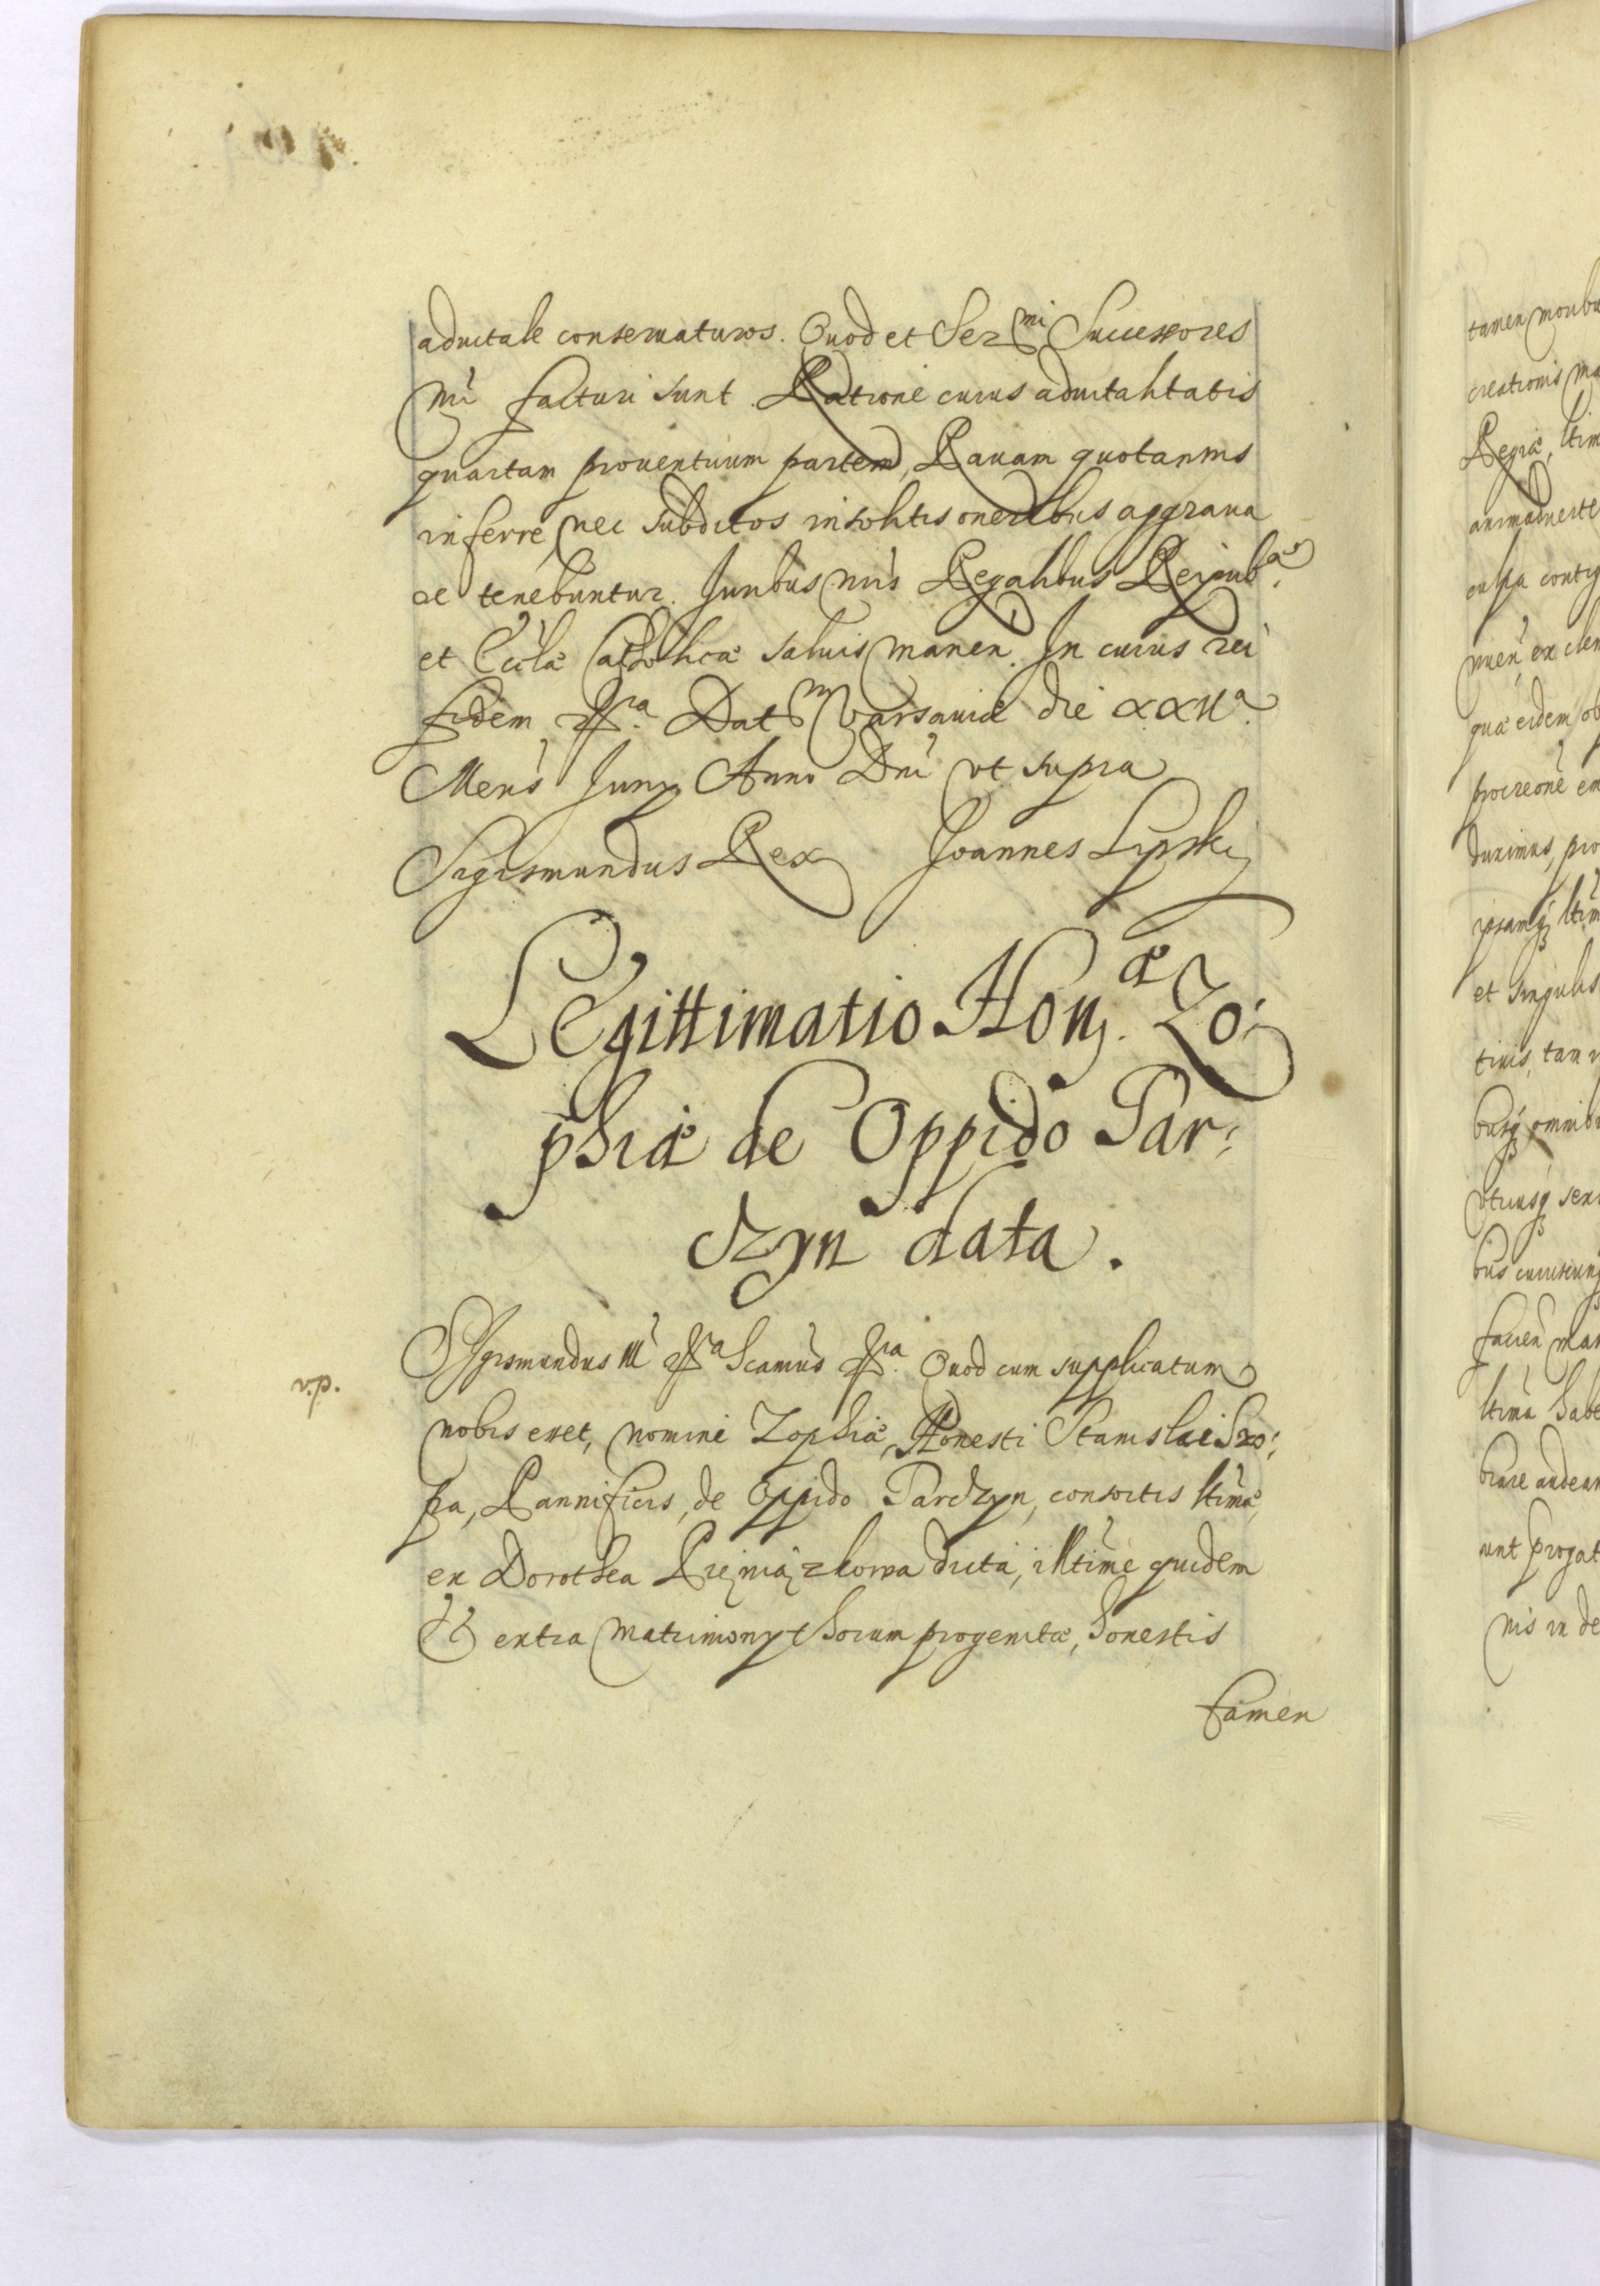 aduitale conseruaturos. Quod et Ser mi Successores
nri facturi sunt. Ratione cuius aduitalitatis
quartam prouentuum partem, Rauam quotannis
inferre nec subditos insolitis oneribus aggraua
re tenebuntur. Juribus nris Regalibus Reipub ae.
et Eccla Catholica saluis manen. In cuius rei
fidem Dat Varsauiæ die XXII a.
Mens Juny Anno Dni vt supra
Sigismundus Rex Joannes Lipsky
Legittimatio Hon. æ Zo:
phiæ de Oppido Tar:
czyn data.
Sigismundus III Quod cum supplicatum
nobis esset, nomine Zophiæ, Honesti Stanislai Szo:
pa, Pannificis, de Oppido Tarczyn, consortis ltimæ,
ex Dorothea dicta, illtime quidem
et extra matrimony thorum progenitæ, honestis
tamen
tamen moribu
creationis ma
Regia, ltim
animaduerte
culpa contig
nuen ex clem
qua eidem ob
duximus, pro
ipsamq ltim
et singulis
tinis, tam
busq omnibu
vtriusq sexu
bus cuiuscunq
facien man
ltima habe
brare audean
nis in de